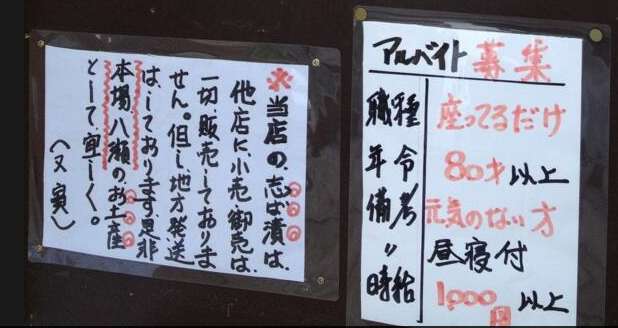 ※当店の、志ば漬は、
他店に小売御売は、
一切販売しておりま
せん。但し地方発送
は、しております、是非
本場八瀬のお土産
として宜しく。
(又寅)
アルバイト 募集
職種 座ってるだけ
年令 80才以上
備考 元気のない方
〃 昼寝付
時給 1,000円以上